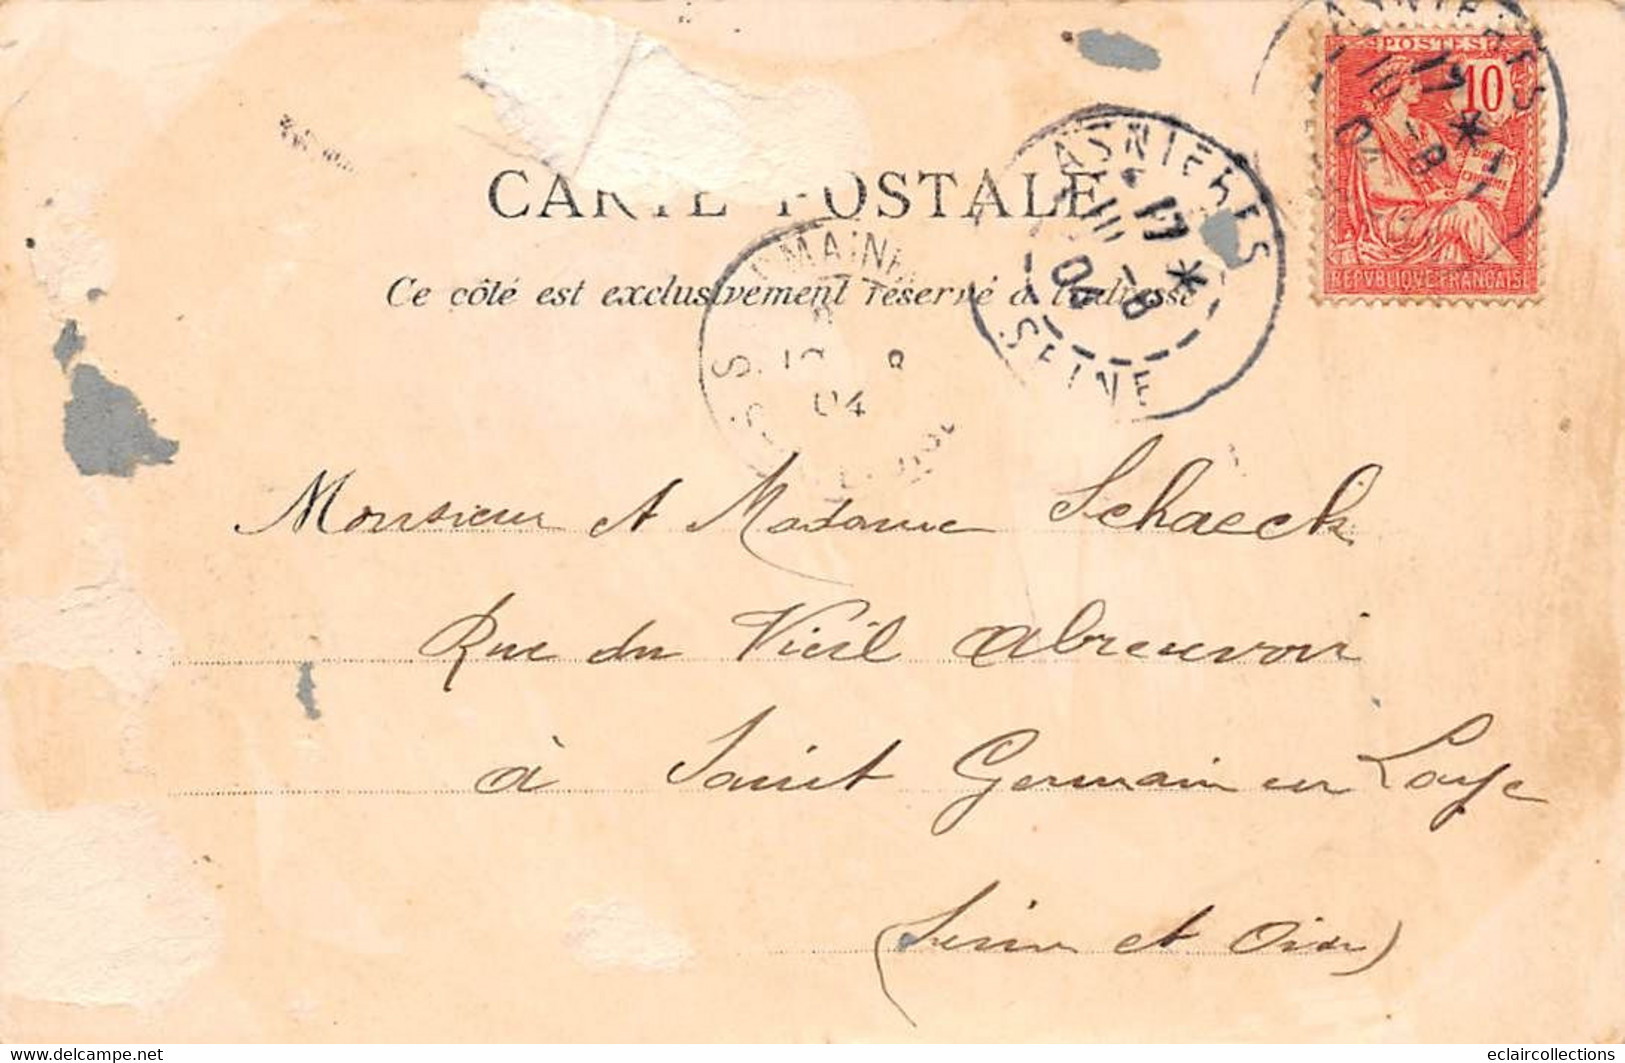 CARTE POSTALE
Ce côté est exclusivement réservé à l'adresse
ASNIERES
17 * 
-8
04
SEINE
POSTES
10
REPVBLIQVE FRANÇAISE
04
Monsieur et Madame Schaeck
Rue du Vieil Abreuvoir
à Saint Germain en Laye
(Seine et Oise)
www.delcampe.net
eclaircollections